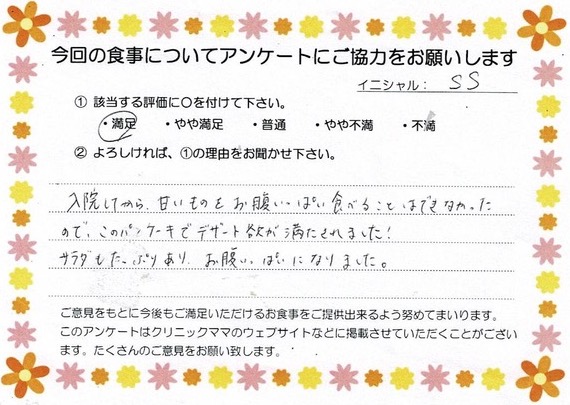 今回の食事についてアンケートにご協力をお願いします
イニシャル： SS
① 該当する評価に○を付けて下さい。
・満足 ・やや満足 ・普通 ・やや不満 ・不満
② よろしければ、①の理由をお聞かせ下さい。
入院してから、甘いものをお腹いっぱい食べることはできなかった
ので、このパンケーキでデザート欲が満たされました！
サラダもたっぷりあり、お腹いっぱいになりました。
ご意見をもとに今後もご満足いただけるお食事をご提供出来るよう努めてまいります。
このアンケートはクリニックママのウェブサイトなどに掲載させていただくことがござい
ます。たくさんのご意見をお願い致します。